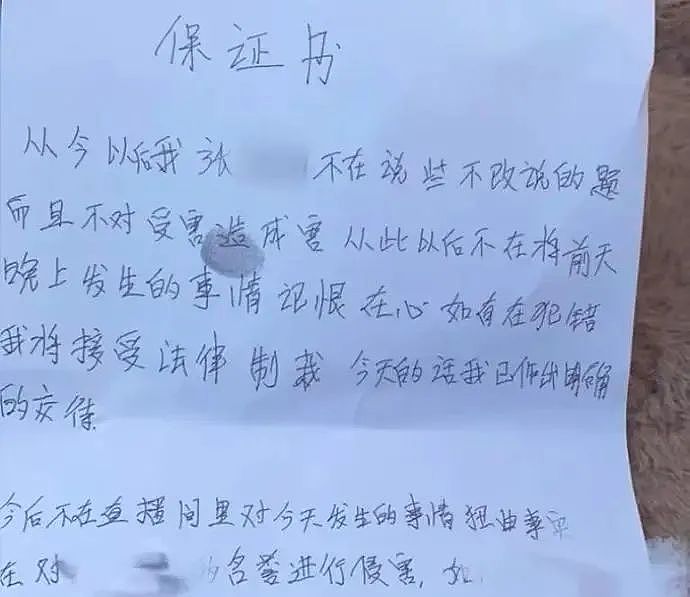 保证书
从今以后我张 不在说些不改说的题
而且不对受害造成害 从此以后不在将前天
晚上发生的事情记恨在心如有在犯错
我将接受法律制裁 今天的话我已作出明确
的交待
今后不在直播间里对今天发生的事情扭曲事
在对 的名誉进行侵害,如